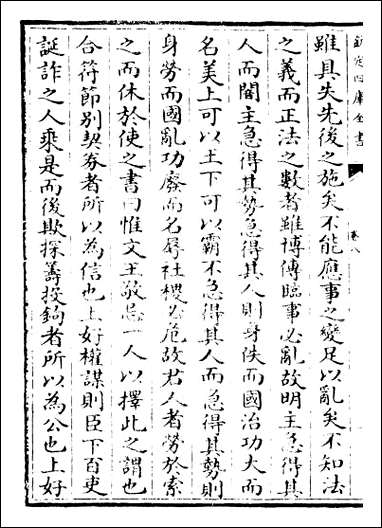 欽定四庫全書
卷八
雖具失先後之施矣不能應事之變足以亂矣不知法
之義而正法之數者雖博傳臨事必亂故明主急得其
人而闇主急得其勢急得其人則身佚而國治功大而
名美上可以王下可以霸不急得其人而急得其勢則
身勞而國亂功廢而名辱社稷必危故君人者勞於索
之而休於使之書曰惟文王敬忌一人以擇此之謂也
合符節别契券者所以為信也上好權謀則臣下百吏
誕詐之人乘是而後欺探籌投鉤者所以為公也上好